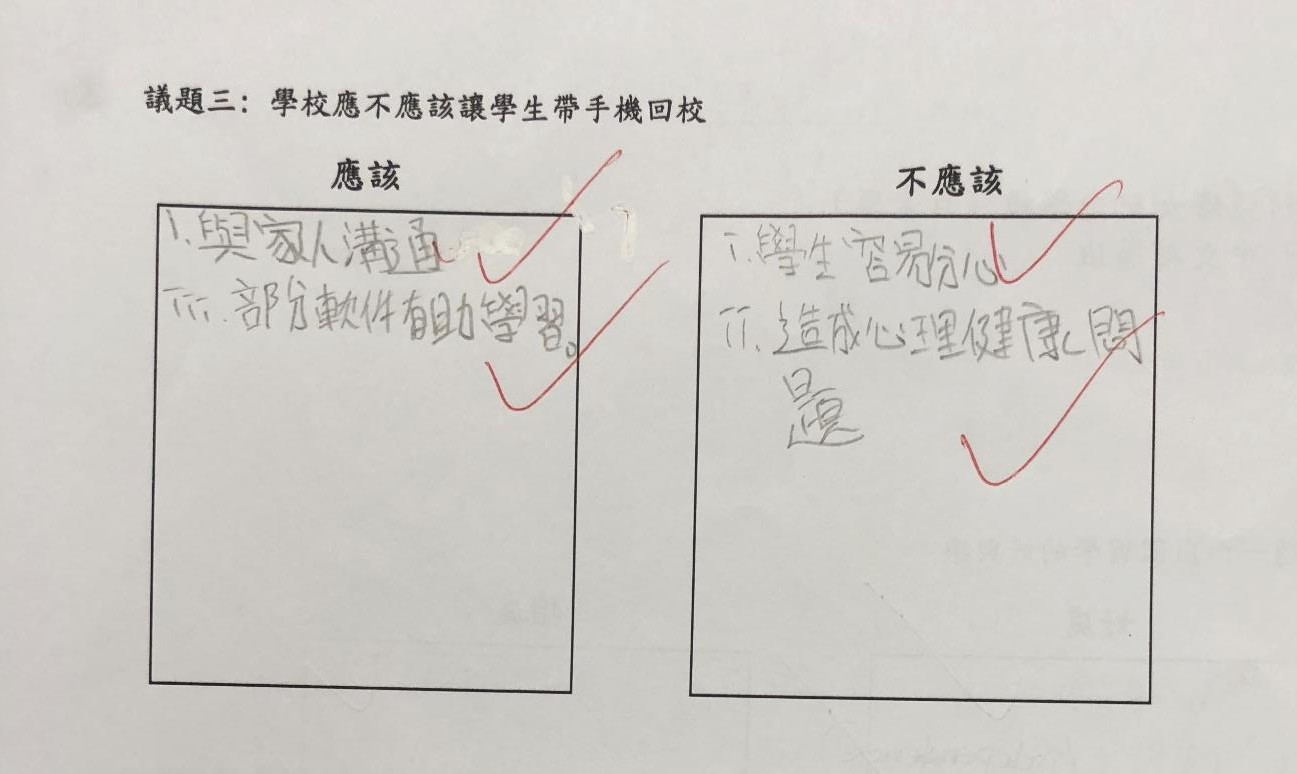 議題三：學校應不應該讓學生帶手機回校
應該
I.與家人溝通
III.部分軟件有助學習。
不應該
I.學生容易分心
II.造成心理健康問
題